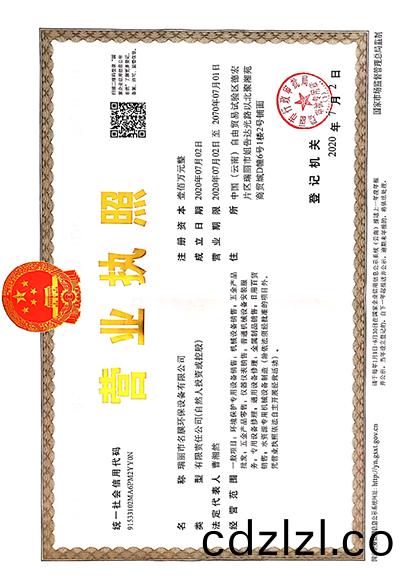 营业执照
统一社会信用代码
91533102MA6PM2YY0N
扫描二维码登录“国
家企业信用信息公示
系统”了解更多登记、
备案、许可、监管信息。
名称 瑞丽市名膜环保设备有限公司
类型 有限责任公司(自然人投资或控股)
法定代表人 曹湘然
经营范围 一般项目:环境保护专用设备销售;机械设备销售;五金产品
批发;五金产品零售;仪器仪表销售;普通机械设备安装服
务;专用设备修理;通用设备修理;金属制品销售;日用百货
销售;水资源专用机械设备制造(除依法须经批准的项目外,
凭营业执照依法自主开展经营活动)。
注册资本 壹佰万元整
成立日期 2020年07月02日
营业期限 2020年07月02日 至 2070年07月01日
住所 中国(云南)自由贸易试验区德宏
片区瑞丽市姐告达光路以北聚湘苑
商贸城D幢6号1楼2号铺面
登记机关
2020 年 7 月 2 日
http://yn.gsxt.gov.cn
国家市场监督管理总局监制
cdzlzl.co